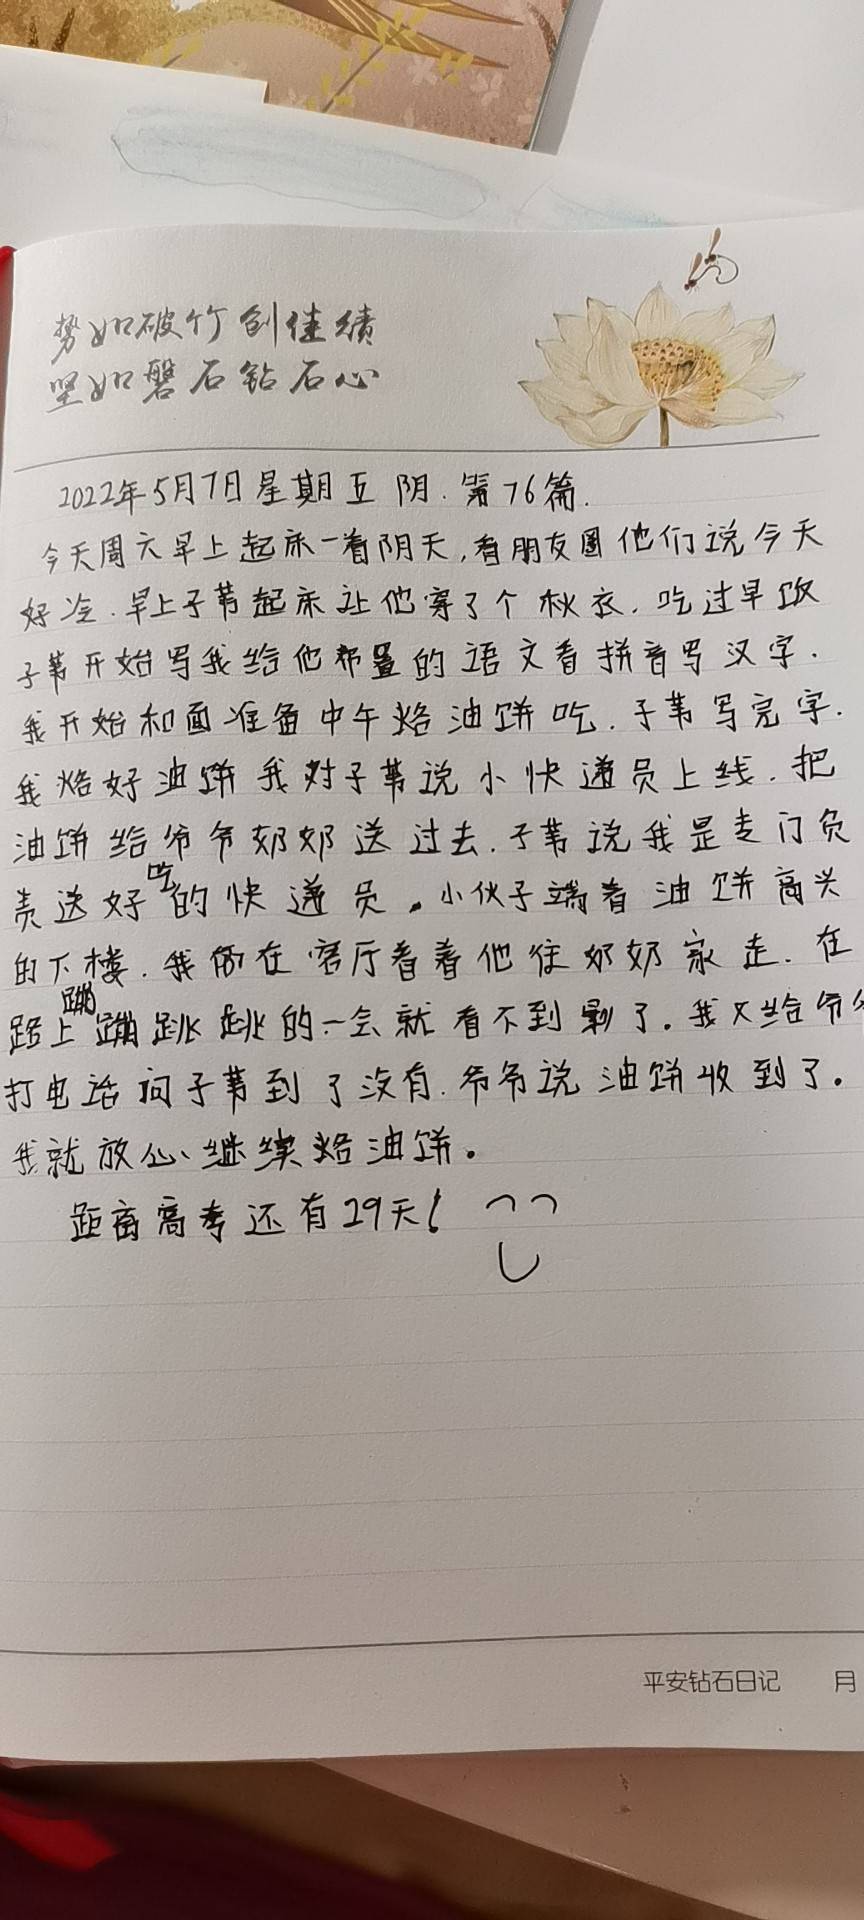 势如破竹创佳绩
坚如磐石钻石心
2022年5月7日星期五阴.第76篇.
今天周六早上起床一看阴天,看朋友圈他们说今天
好冷.早上子苇起床让他穿了个秋衣.吃过早饭
子苇开始写我给他布置的语文看拼音写汉字.
我开始和面准备中午烙油饼吃.子苇写完字.
我烙好油饼我对子苇说小快递员上线.把
油饼给爷爷奶奶送过去.子苇说我是专门负
责送好吃的快递员。小伙子端着油饼高兴
的下楼.我在客厅看着他往奶奶家走.在
路上蹦蹦跳跳的一会就看不到了。我又给爷爷
打电话问子苇到了没有.爷爷说油饼收到了。
我就放心继续烙油饼。
距离高考还有29天!
平安钻石日记 月